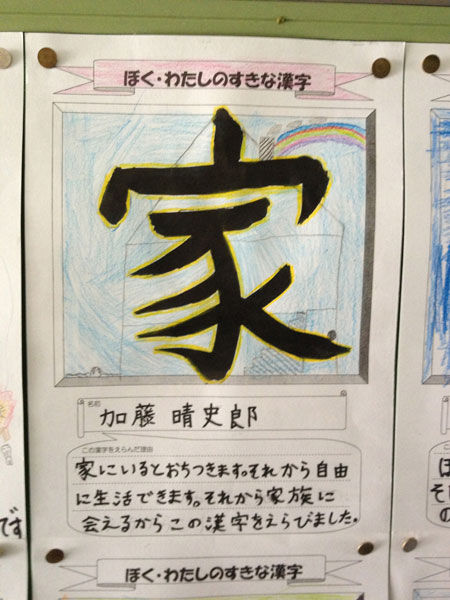 ぼく・わたしのすきな漢字
家
名前
加藤 晴史郎
この漢字をえらんだ理由
家にいるとおちつきます。それから自由
に生活できます。それから家族に
会えるからこの漢字をえらびました。
です
ぼく・わたしのすきな漢字